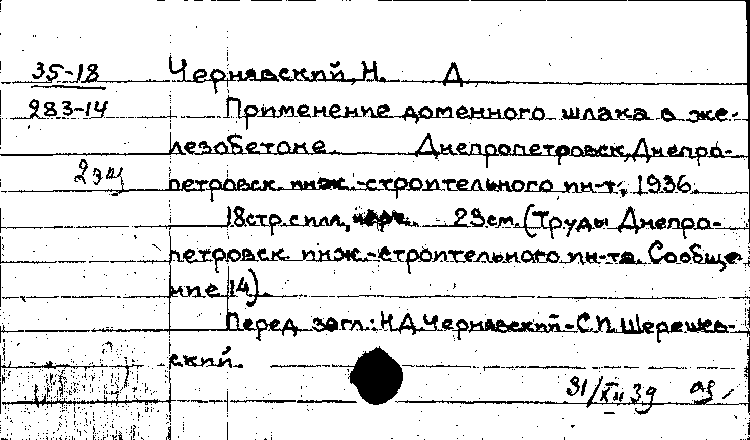 35-18 Чернявский, Н. Д.
283-14 Применение доменного шлака в же-
лезобетоне. Днепропетровск, Днепро-
2 экз
петровск. инж.-строительного ин-т, 1936.
18 стр. с илл., черт. 23 см. (Труды Днепро-
петровск. инж.-строительного ин-та. Сообще-
ние 14).
Перед загл.: Н.Д. Чернявский - С.П. Шерешев-
ский.
31/XII 39